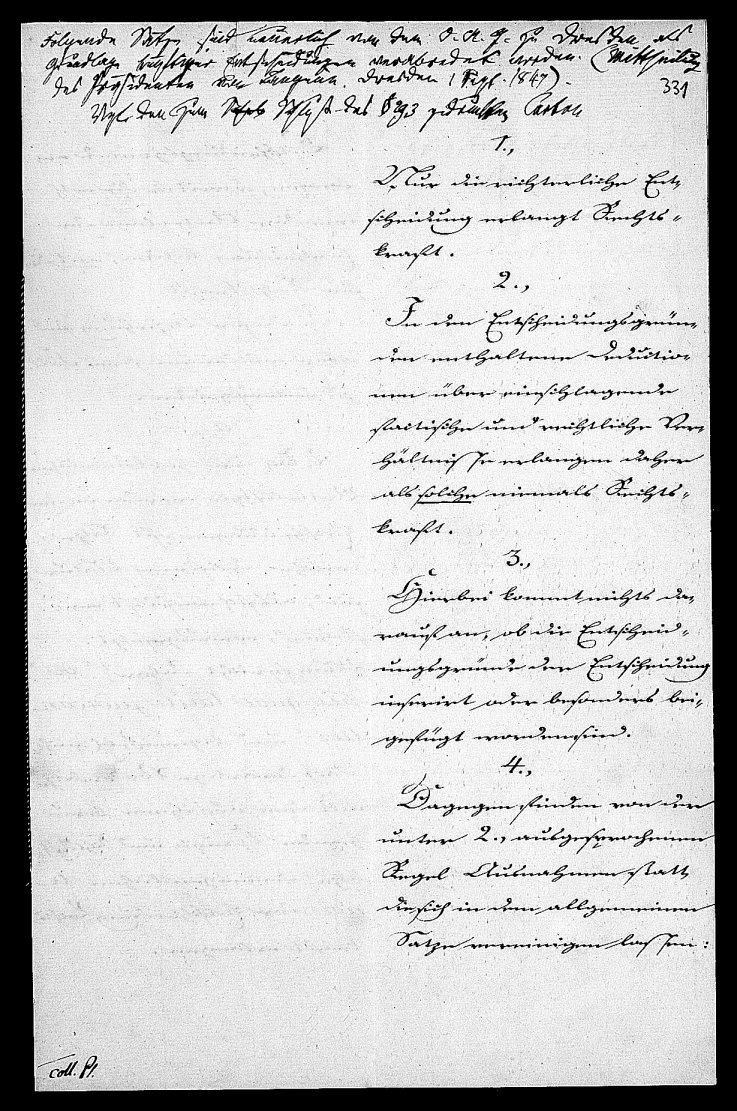 Folgende Sätze sind neuerlich von dem O. A. G. zu Dresden als
Grundlage künftiger Entscheidungen verabredet worden. (Mittheilung
des Präsidenten von Langenn. Dresden 1 Sept. 1847).
331
Vgl. den zum Schluß des § 293 gedruckten Carton
1.,
Nur die richterliche Ent-
scheidung erlangt Rechts-
kraft.
2.,
In den Entscheidungsgrün-
den enthaltene Deductio-
nen über einschlagende
factische und rechtliche Ver-
hältnisse erlangen daher
als solche niemals Rechts-
kraft.
3.,
Hierbei kommt nichts da-
rauf an, ob die Entscheid-
ungsgründe der Entscheidung
inserirt oder besonders bei-
gefügt worden sind.
4.,
Dagegen finden von der
unter 2., ausgesprochenen
Regel Ausnahmen statt,
die sich in dem allgemeinen
Satze vereinigen lassen:
coll. Pl.